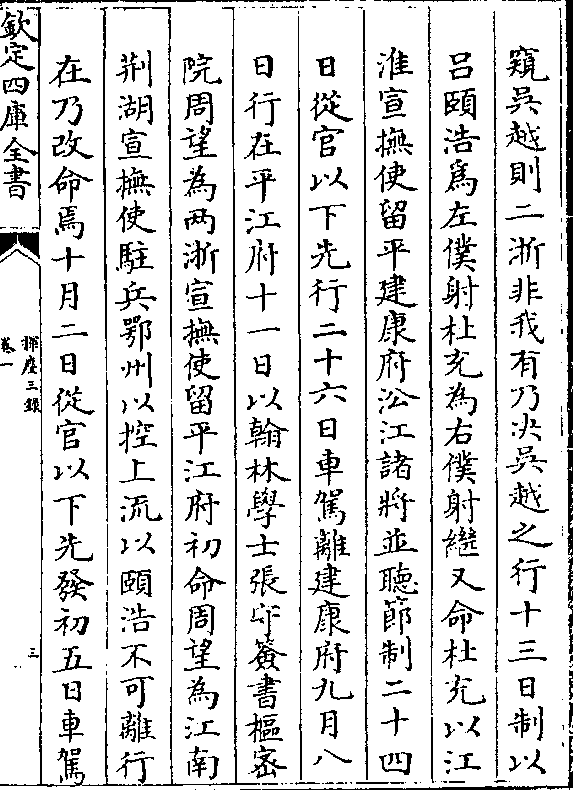 窺吳越則二浙非我有乃决吳越之行十三日制以
吕頤浩爲左僕射杜充為右僕射繼又命杜充以江
淮宣撫使留平建康府㳂江諸將並聽節制二十四
日從官以下先行二十六日車駕離建康府九月八
日行在平江府十一日以翰林學士張守簽書樞密
院周望為两浙宣撫使留平江府初命周望為江南
荆湖宣撫使駐兵鄂州以控上流以頤浩不可離行
在乃改命焉十月二日從官以下先發初五日車駕
欽定四庫全書
揮麈三錄
卷一
三